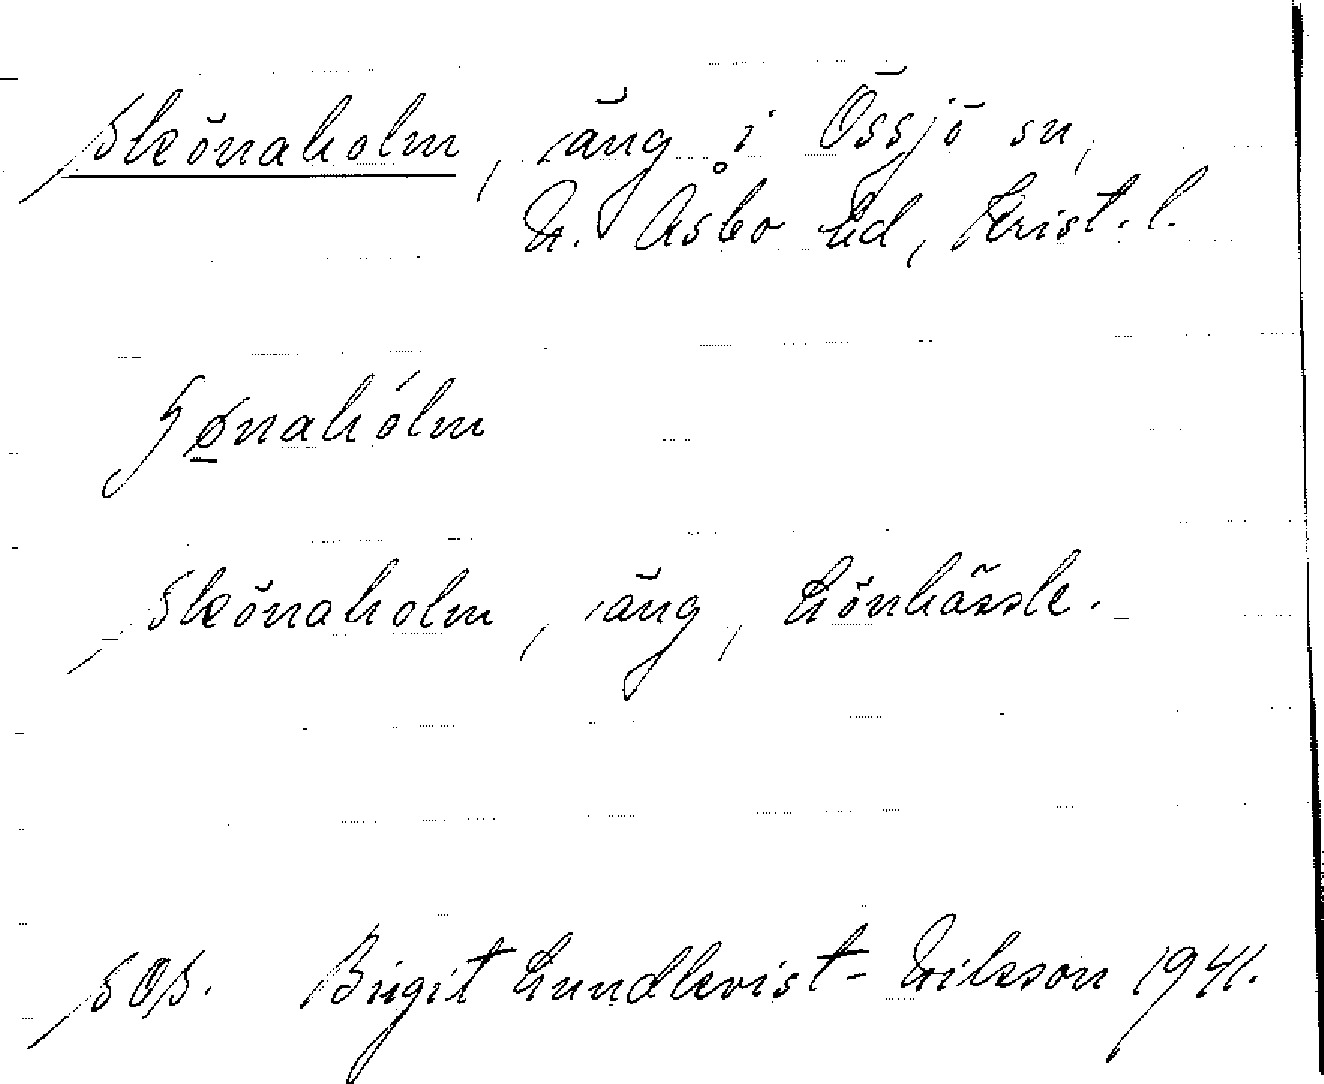 Skönaholm, äng i Össjö sn,
N. Åsbo hd, Krist. l.
Skönaholm, äng, Lönhässle.
SOS. Birgit Lundkvist-Nilsson 1941.